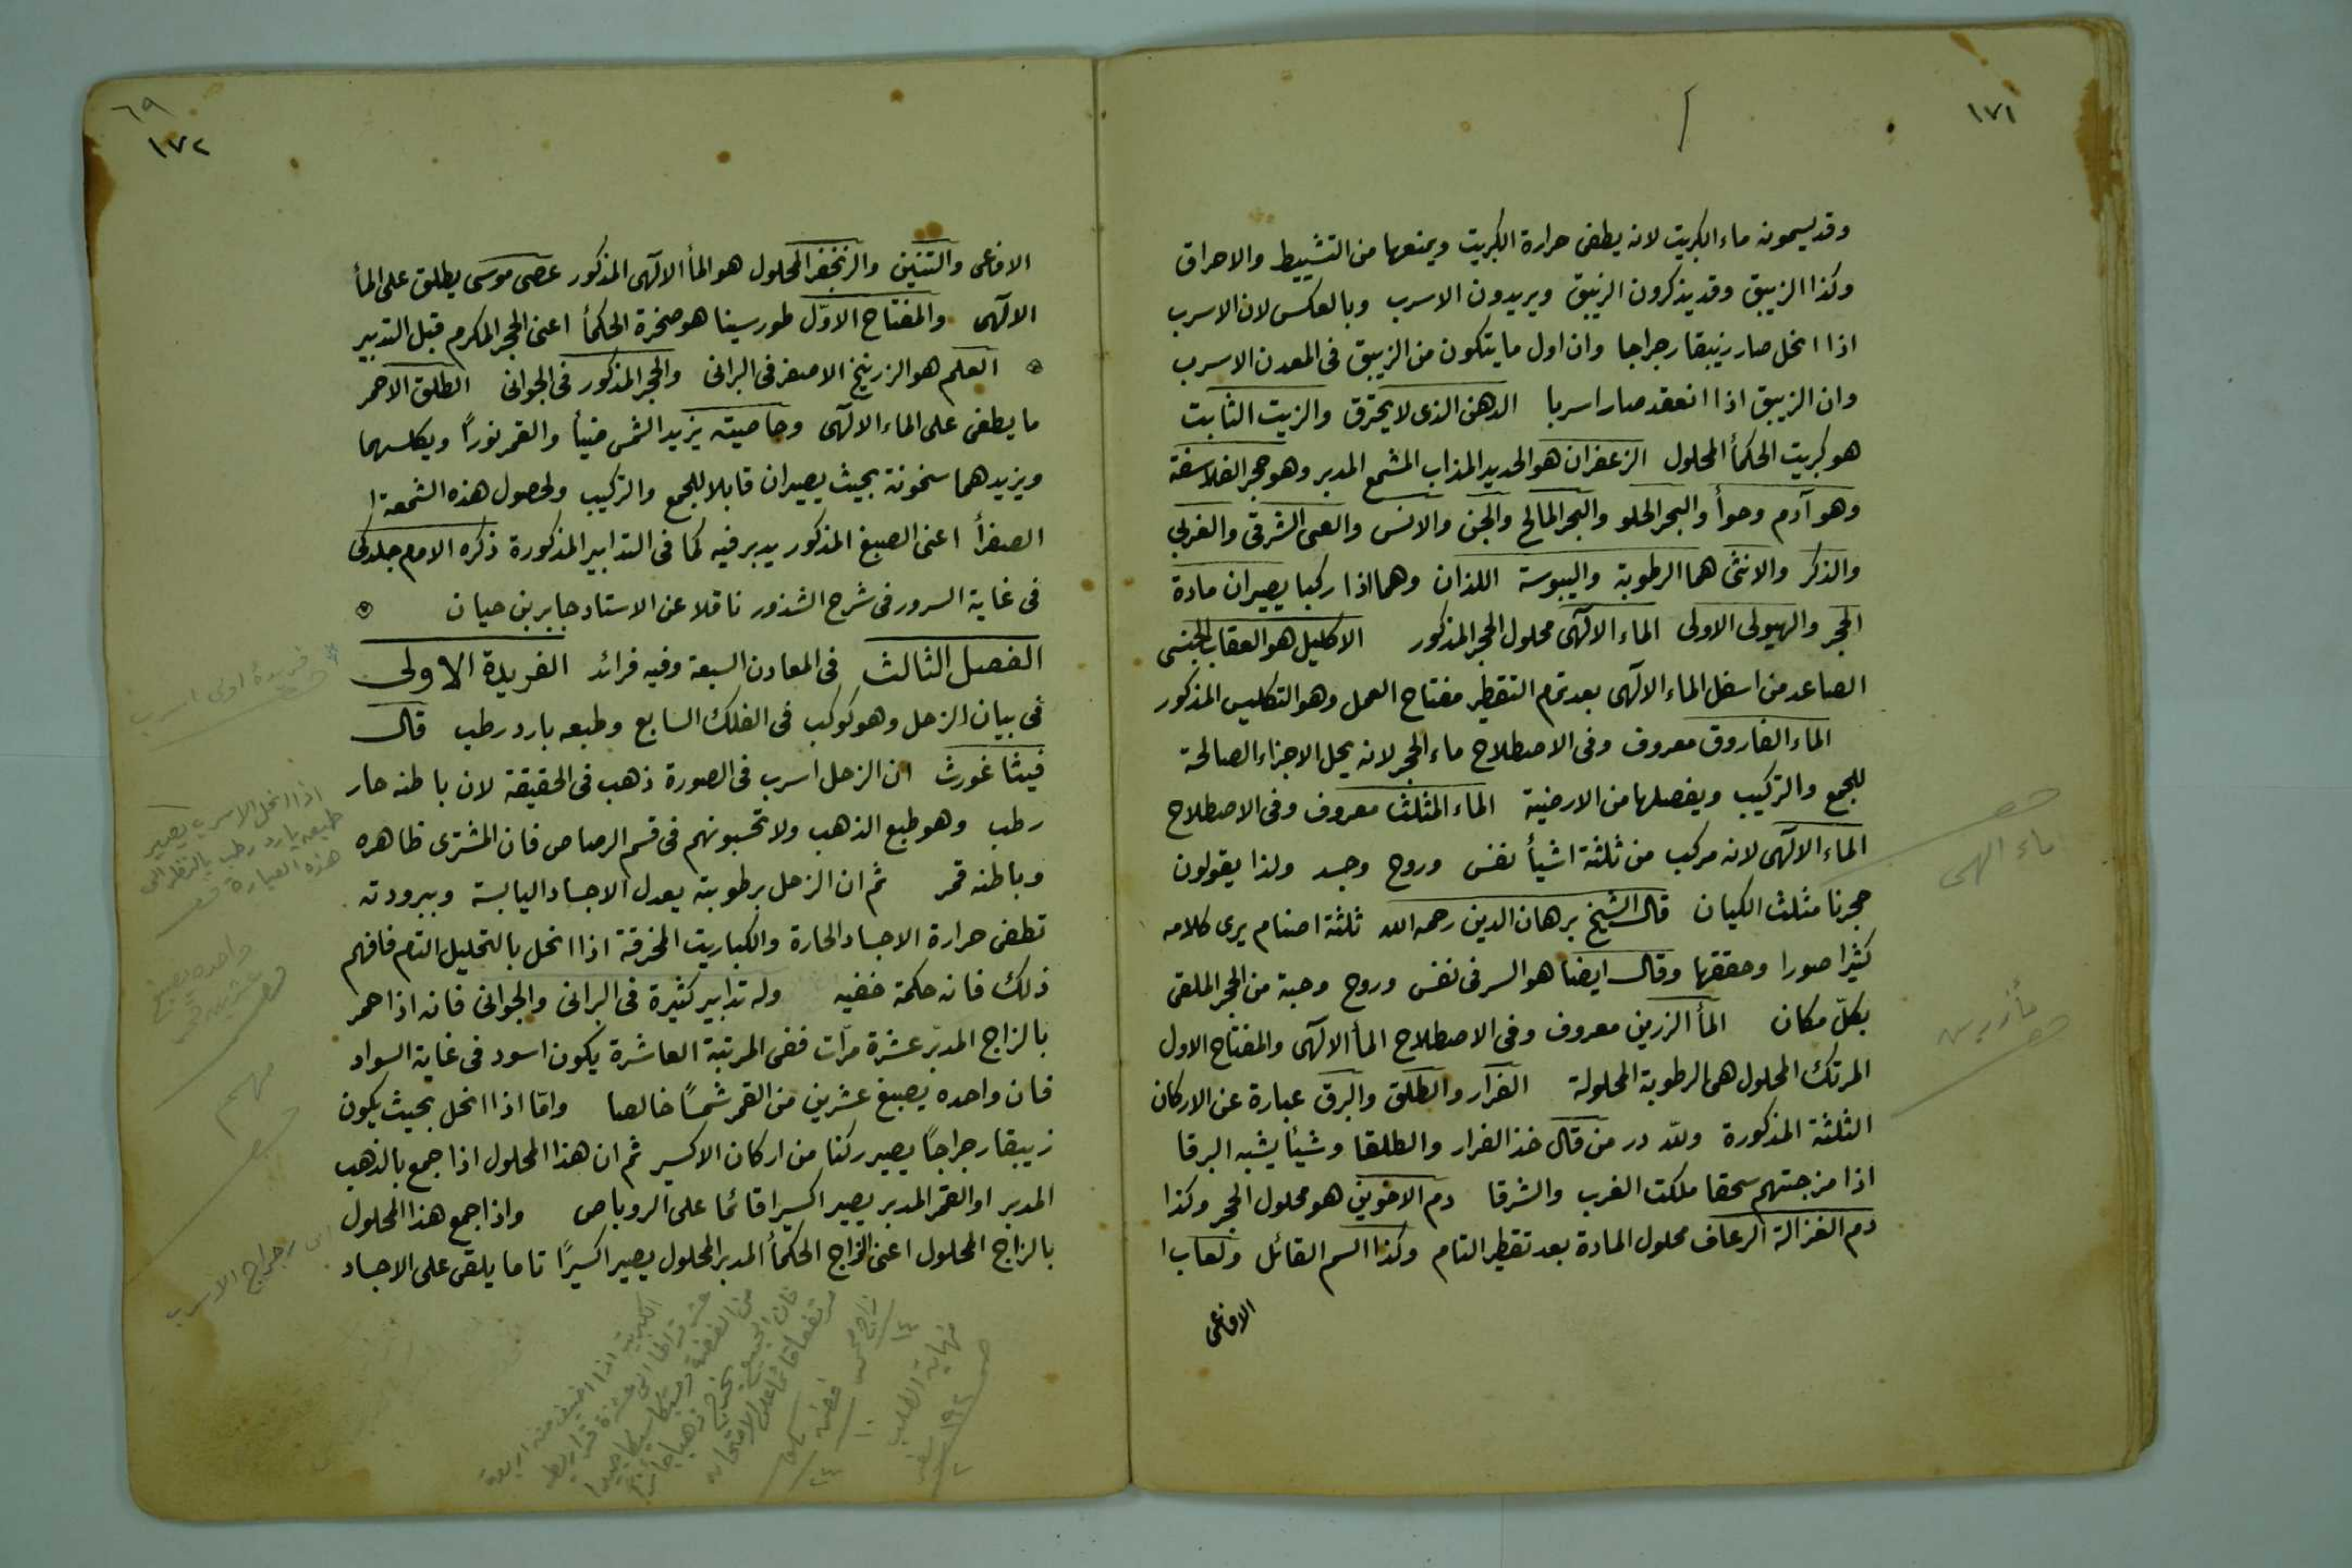 ١٧١
وقد يسمونه ماء الكبريت لانه يطفى حرارة الكبريت ويمنعها من التشييط والاحراق
وكذا الزيبق وقد يذكرون الزيبق ويريدون الاسرب وبالعكس لان الاسرب
اذا انحل صار زيبقا رجراجا وان اول ما يتكون من الزيبق فى المعدن الاسرب
وان الزيبق اذا انعقد صار اسربا الدهن الذى لا يحترق والزيت الثابت
هو كبريت الحكمأ المحلول الزعفران هو الحديد المذاب المشمع المدبر وهو حجر الفلاسفة
وهو آدم وحوأ والبحر الحلو والبحر المالح والجن والانس والعى الشرقى والغربي
والذكر والانثى هما الرطوبة واليبوسة اللذان وهما اذا ركبا يصيران مادة
الحجر والهيولى الاولى الماء الالهى محلول الحجر المذكور الاكليل هو العقاب الجنسى
الصاعد من اسفل الماء الالهى بعد تمام التقطير مفتاح العمل وهو التكليس المذكور
الماء الفاروق معروف وفى الاصطلاح ماء الحجر لانه يحل الاجزاء الصالحة
للجمع والتركيب ويفصلها من الارضية الماء المثلث معروف وفى الاصطلاح
الماء الالهى لانه مركب من ثلثة اشيأ نفس وروح وجسد ولذا يقولون
حجرنا مثلث الكيان قال الشيخ برهان الدين رحمه الله ثلثة اصنام يرى كلامه
كثيرا صورا وحققها وقال ايضا هو السر فى نفس وروح وحبة من الحجر الملقى
بكلّ مكان المأ الزرين معروف وفى الاصطلاح المأ الالهى والمفتاح الاول
المرتك المحلول هى الرطوبة المحلولة الفرار والطلق والبرق عبارة عن الاركان
الثلثة المذكورة ولله در من قال خذ الفرار والطلقا وشيئا يشبه البرقا
اذا مزجتهم سحقا ملكت الغرب والشرقا دم الاخوين هو محلول الحجر وكذا
دم الغزالة الرعاف محلول المادة بعد تقطير التام وكذا السم القاتل ولعاب ا
الافاعى
ماء الهى
مأ زرين
٦٩
١٧٢
الافاعى والتنين والزنجفر المحلول هو المأ الالهى المذكور عصى موسى يطلق على المأ
الالهى والمفتاح الاوّل طور سينا هو صخرة الحكمأ اعنى الحجر المكرم قبل التدبير
العلم هو الزرنيخ الاصفر فى البرانى والحجر المذكور فى الجوانى الطلق الاحمر
ما يطفى على الماء الالهى وخاصيته يزيد الشمس ضيأ والقمر نوراً ويكلسهما
ويزيدهما سخونة بحيث يصيران قابلا للجمع والتركيب ولحصول هذه الشمعة ا
الصفرأ اعنى الصبغ المذكور يدبر فيه كما فى التدابير المذكورة ذكره الامام جلدكى
فى غاية السرور فى شرح الشذور ناقلا عن الاستاد جابر بن حيان
الفصل الثالث فى المعادن السبعة وفيه فرائد الفريدة الاولى
فى بيان الزحل وهو كوكب فى الفلك السابع وطبعه بارد رطب قال
فيثاغورث ان الزحل اسرب فى الصورة ذهب فى الحقيقة لان باطنه حار
رطب وهو طبع الذهب ولا تحسبونهم فى قسم الرصاص فان المشترى ظاهره
وباطنه قمر ثم ان الزحل برطوبته يعدل الاجساد اليابسة وببرودته
تطفى حرارة الاجساد الحارة والكباريت المحرقة اذا انحل بالتحليل التام فافهم
ذلك فانه حكمة خفيه وله تدابير كثيرة فى البرانى والجوانى فانه اذا حمر
بالزاج المدبّر عشرة مرّات ففى المرتبة العاشرة يكون اسود فى غاية السواد
فان واحده يصبغ عشرين من القمر شمسًا خالصا وامّا اذا انحل بحيث يكون
زيبقا رجراجاً يصير ركنا من اركان الاكسير ثم ان هذا المحلول اذا جمع بالذهب
المدبر او القمر المدبر يصير اكسيرا قائما على الروباص واذا جمع هذا المحلول
بالزاج المحلول اعنى الزاج الحكمأ المدبر المحلول يصير اكسيرًا تاما يلقى على الاجساد
فريدهٔ اولى اسرب
اذا انحل الاسرب يصير
طبعه بارد رطب بالنظر الى
هذه العبارة
واحده يصبغ
عشرين قمر
مهم
رجراج الاسرب
الكبريت اذا اضيف منه اربعة
من الفضة
فان الجميع يخرج ذهبا
زاج
١٤
فضه
١٠
٢٤
نهاية الطلب
ص ١٩٢
٢